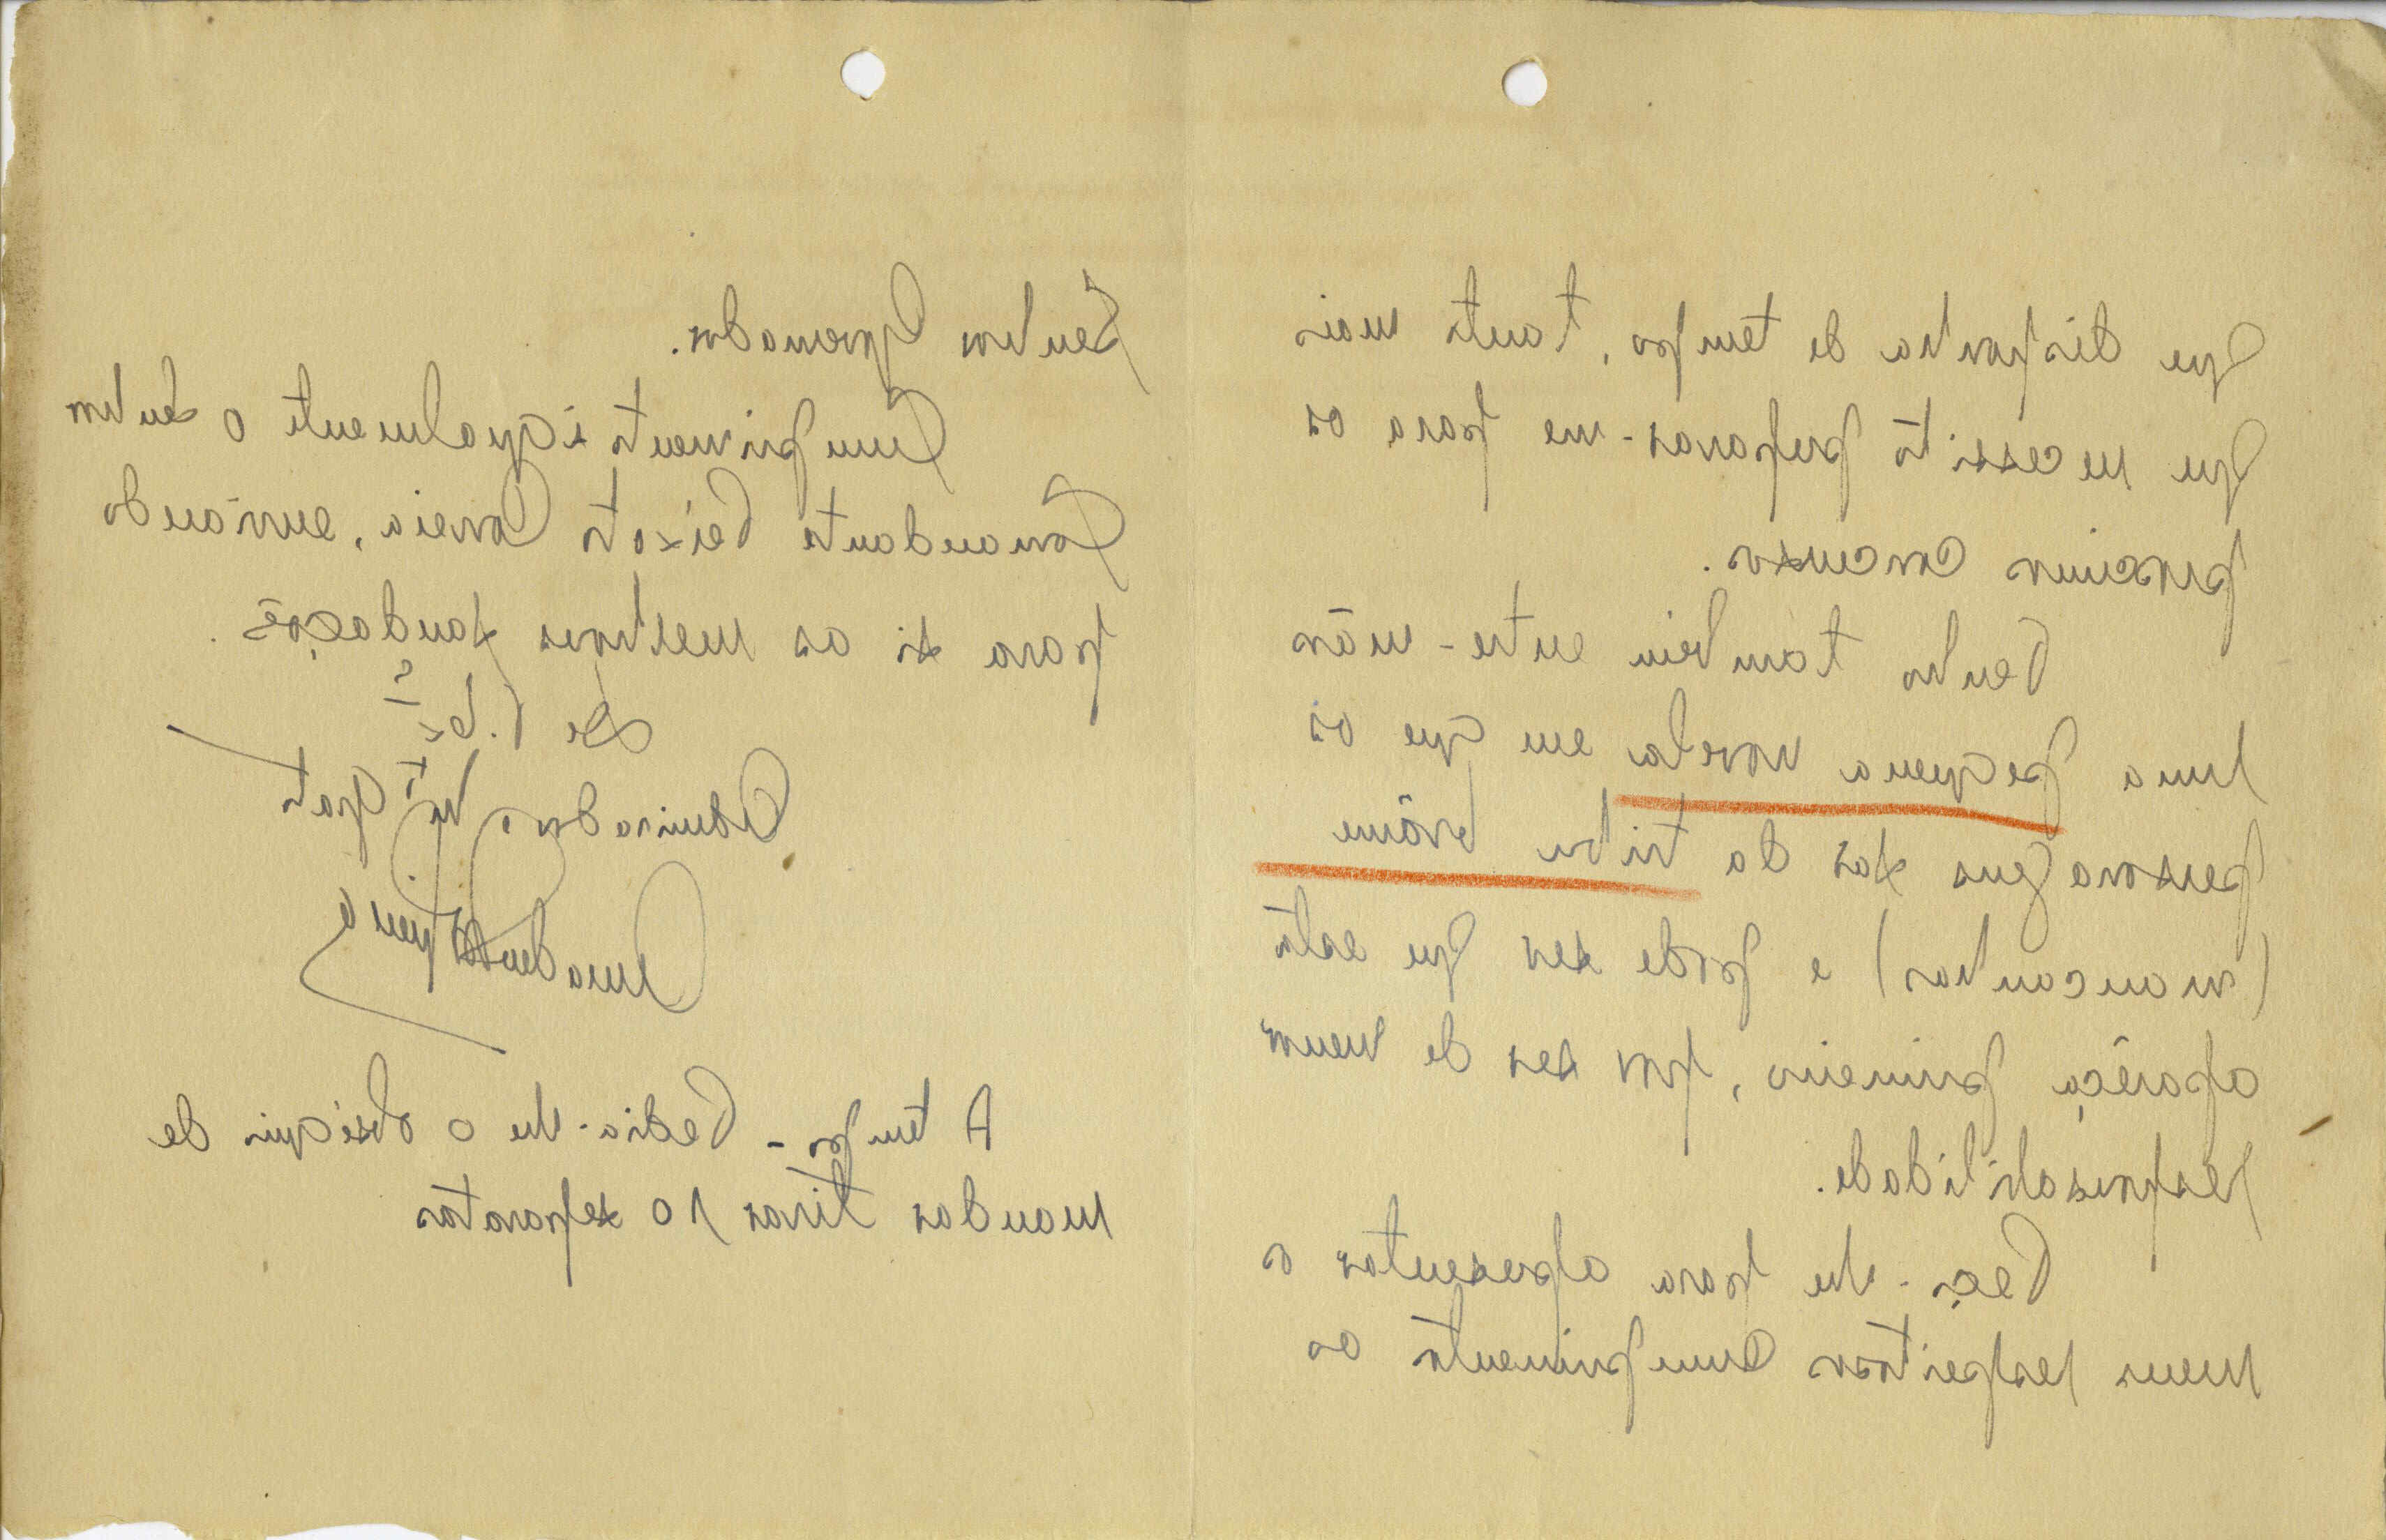 que disponha de tempo, tanto mais
que necessito preparar-me para os
proximos concursos.
Tenho tambem entre-mãos
uma pequena novela em que os
personagens sao da tribu brâme
(mancanhas) e pode ser que esta
apareça primeiro, por ser de menor
responsabilidade.
Peço-lhe para apresentar o
meus respeitoso cumprimento ao
Senhor Governador.
Cumprimento igualmente o Senhor
Comandante Teixeira Correia, enviando
para si as melhores saudações.
De V. Exª
Admirador Mto grato
A tempo - Pedia-lhe o obséquio de
mandar tirar 10 separatas